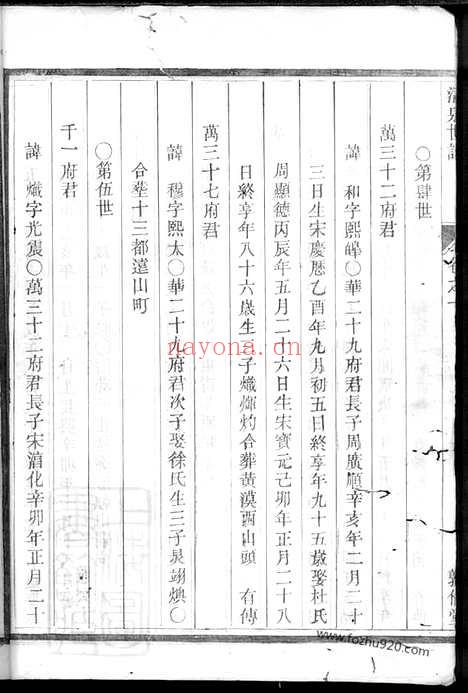 ○第肆世
萬三十二府君
諱 和字熙皞○華二十九府君長子周廣順辛亥年二月二十
三日生宋慶曆乙酉年九月初五日終享年九十五歲娶杜氏
周顯德丙辰年五月二十六日生宋寶元己卯年正月二十八
日終享年八十六歲生三子熾煇灼合葬黄漠西山頭 有傳
萬三十七府君
諱 穆字熙太○華二十九府君次子娶徐氏生三子炅翊煥○
合塟十三都遠山町
○第伍世
千一府君
諱 熾字光震○萬三十二府君長子宋淳化辛卯年正月二十
nayona.cn
www.fozhu920.com